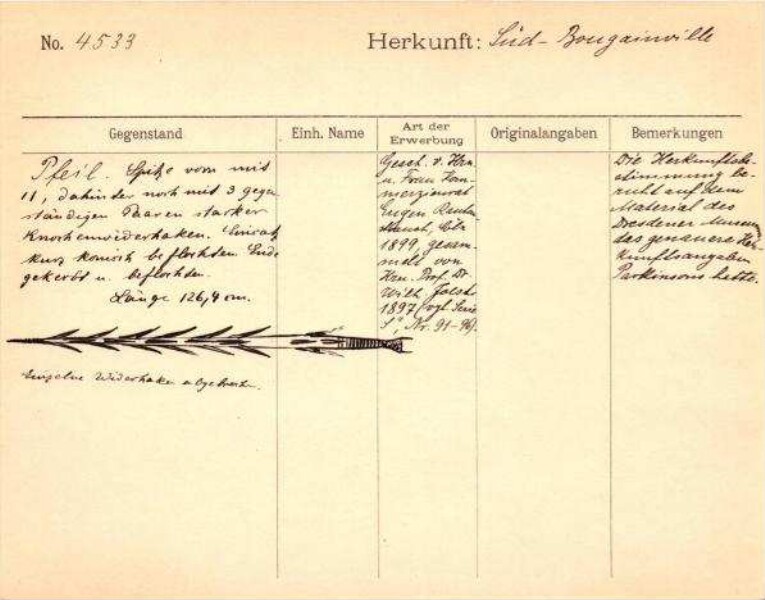 No. 4533
Herkunft: Süd-Bougainville
Gegenstand
Einh. Name
Art der Erwerbung
Originalangaben
Bemerkungen
Pfeil. Spitze vorn mit
11, dahinter noch mit 3 gegen-
ständigen Paaren starker
Knochenwiderhaken. Einsatz
kurz konisch beflochten. Ende
gekerbt u. beflochten.
Länge 126,4 cm.
Einzelne Widerhaken abgebrochen.
Gesch. v. Hrn.
u. Frau Kom-
merzienrat
Eugen Rauten-
strauch, Cöln
1899, gesam-
melt von
Hrn. Prof. Dr.
Wilh. Joest
1897 (vgl. Serie
Nr. 91-96).
Die Herkunftsbe-
stimmung be-
ruht auf dem
Material des
Dresdener Museums,
das genauere Her-
kunftsangaben
Parkinsons hatte.